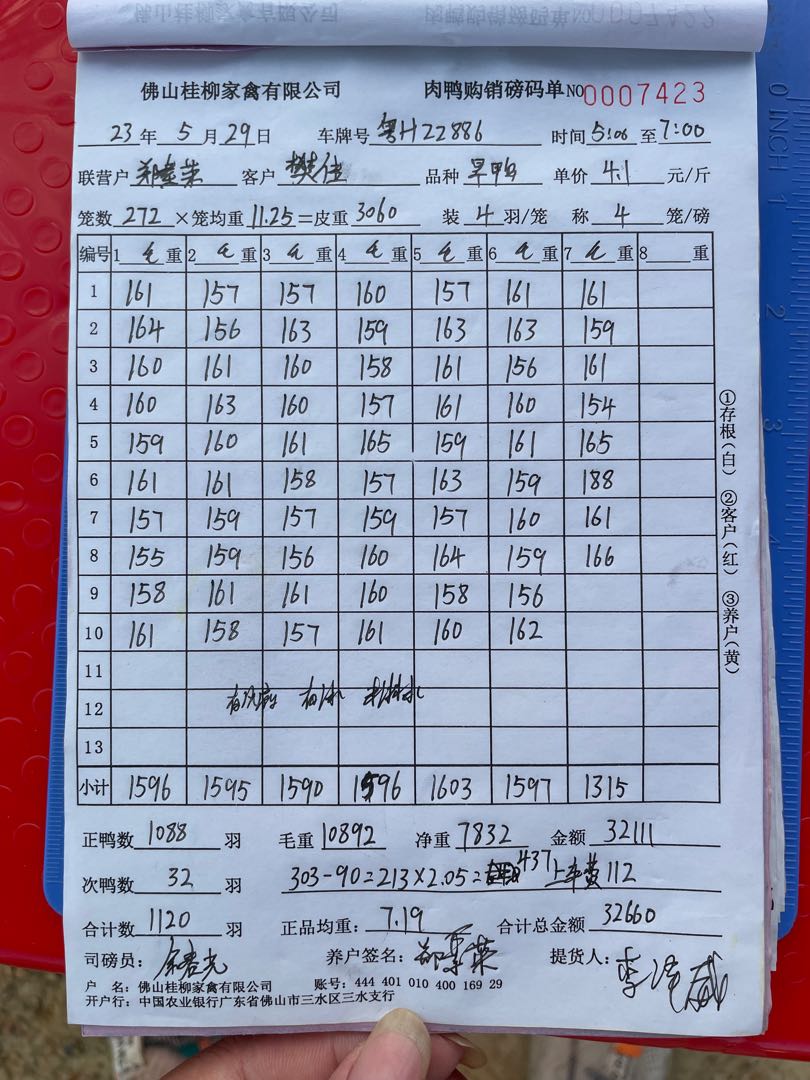 佛山桂柳家禽有限公司 肉鸭购销磅码单 NO 0007423
23年5月29日 车牌号 粤H22886 时间 5:06 至 7:00
联营户 郑 荣 客户 樊佳 品种 旱鸭 单价 4.1 元/斤
笼数 272 ×笼均重 11.25 =皮重 3060 装 4 羽/笼 称 4 笼/磅
编号 1 毛 重 2 毛 重 3 毛 重 4 毛 重 5 毛 重 6 毛 重 7 毛 重 8 重
1 161 157 157 160 157 161 161
2 164 156 163 159 163 163 159
3 160 161 160 158 161 156 161
4 160 163 160 157 161 160 154
5 159 160 161 165 159 161 165
6 161 161 158 157 163 159 188
7 157 159 157 159 157 160 161
8 155 159 156 160 164 159 166
9 158 161 161 160 158 156
10 161 158 157 161 160 162
11
12
13
小计 1596 1595 1590 1596 1603 1597 1315
正鸭数 1088 羽 毛重 10892 净重 7832 金额 32111
次鸭数 32 羽 303-90=213×2.05=437 上车费112
合计数 1120 羽 正品均重: 7.19 合计总金额 32660
司磅员: 养户签名: 郑 荣 提货人: 李 威
户 名: 佛山桂柳家禽有限公司 账号: 444 401 010 400 169 29
开户行: 中国农业银行广东省佛山市三水区三水支行
①存根(白) ②客户(红) ③养户(黄)
INCH 1 2 3 4